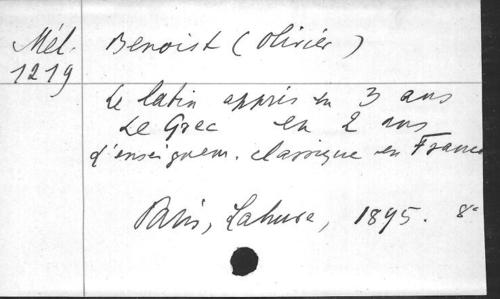 Mél. Benoist (Olivier)
1219
Le latin appris en 3 ans
Le Grec en 2 ans
d'enseignem. classique en France
Paris, Lahure, 1895. 8°